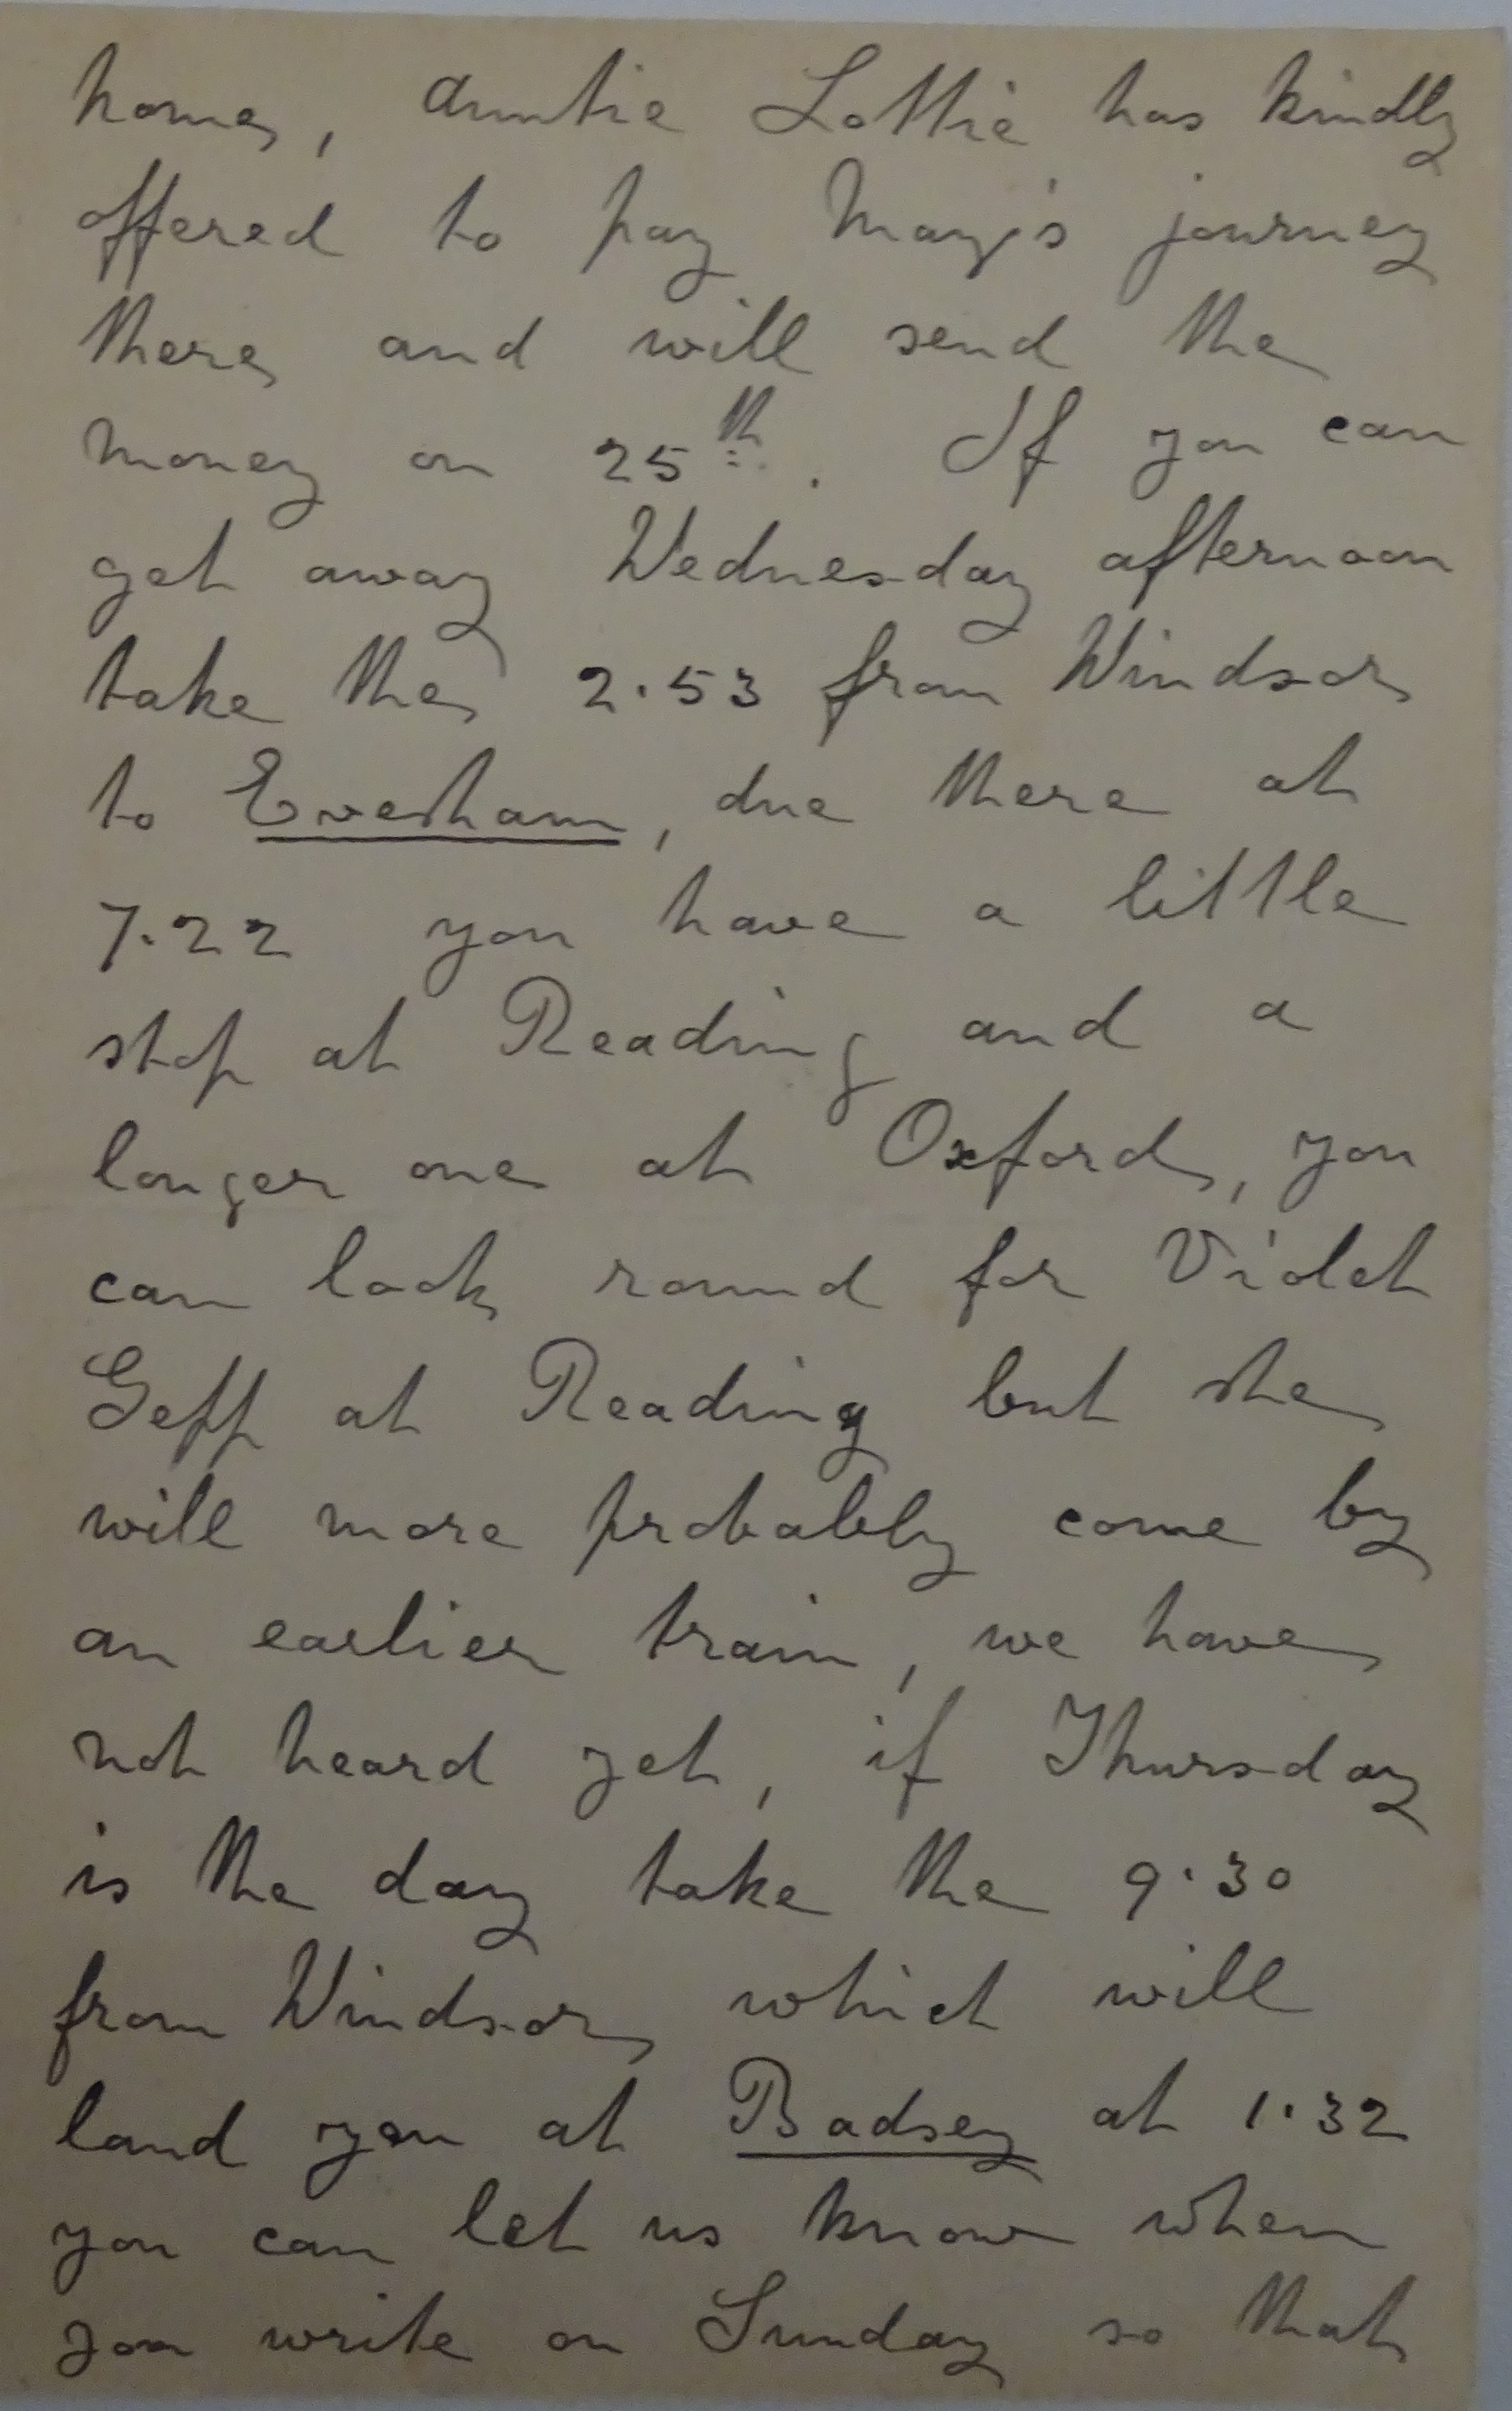 home, Auntie Lottie has kindly
offered to pay May's journey
there and will send the
money on 25th. If you can
get away Wednesday afternoon
take the 2.53 from Windsor
to Evesham, due there at
7.22 you have a little
stop at Reading and a
longer one at Oxford, you
can look round for Violet
Geff at Reading but she
will more probably come by
an earlier train, we have
not heard yet, if Thursday
is the day take the 9.30
from Windsor which will
land you at Badsey at 1.32
you can let us know when
you write on Sunday so that